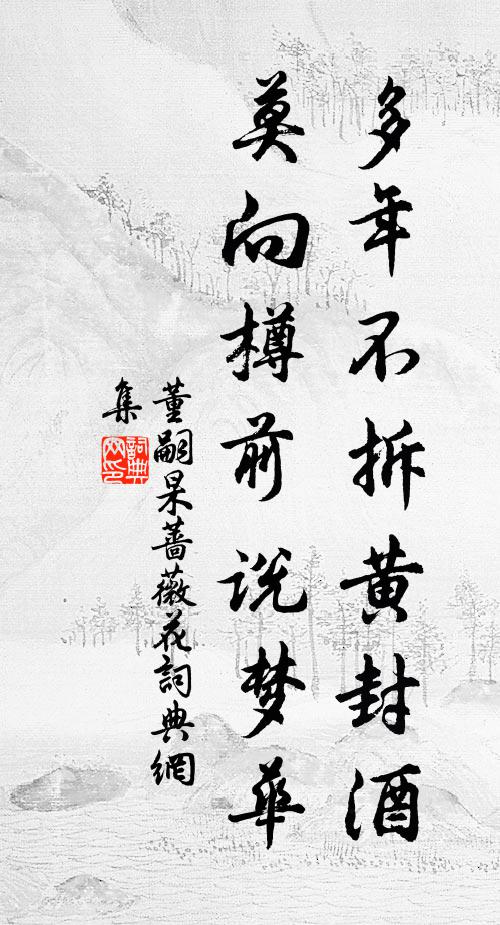 多年不拆黄封酒
莫向樽前说梦华
董嗣杲蔷薇花詞典網
集
詞典网印